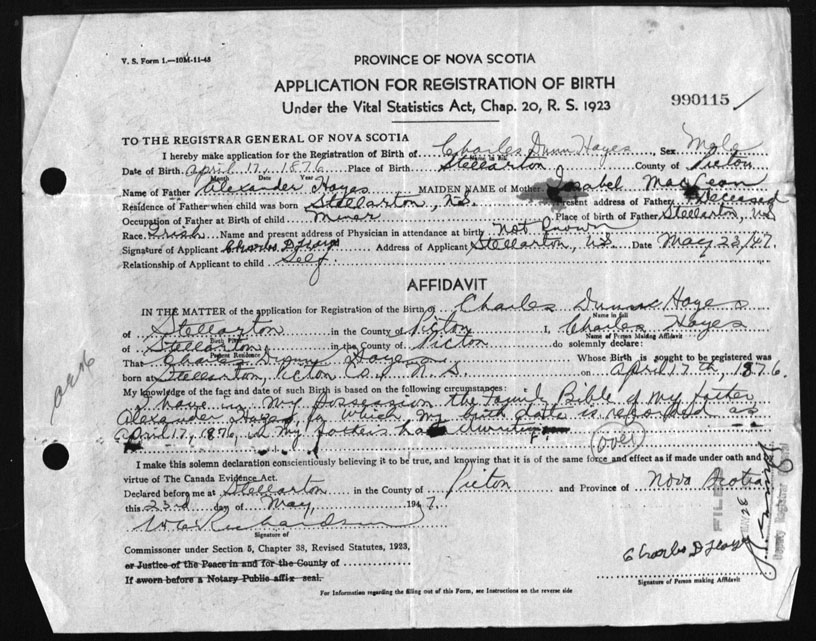 V. S. Form 1.—10M-11-45
PROVINCE OF NOVA SCOTIA
APPLICATION FOR REGISTRATION OF BIRTH
Under the Vital Statistics Act, Chap. 20, R. S. 1923
990115
TO THE REGISTRAR GENERAL OF NOVA SCOTIA
I hereby make application for the Registration of Birth of Charles Dunn Hayes, Sex Male
Name in full
Date of Birth april 17, 1876 Place of Birth Stellarton County of Picton
Month Date Year
Name of Father Alexander Hayes MAIDEN NAME of Mother Isabel MacLean
Residence of Father when child was born Stellarton, N.S. Present address of Father Deceased
Occupation of Father at Birth of child Miner Place of birth of Father Stellarton, NS
Race Irish Name and present address of Physician in attendance at birth Not Known
Signature of Applicant Charles D Hayes Address of Applicant Stellarton, N.S. Date May 23/47.
Relationship of Applicant to child Self
AFFIDAVIT
IN THE MATTER of the application for Registration of the Birth of Charles Dunn Hayes
Name in full
of Stellarton in the County of Picton I, Charles Hayes
Birth Place Name of Person Making Affidavit
of Stellarton in the County of Picton do solemnly declare:
Present Residence
That Charles Hayes Whose Birth is sought to be registered was
born at Stellarton, Picton Co., N.S. on April 17th, 1876.
My knowledge of the fact and date of such Birth is based on the following circumstances:
I have in My possession the Family Bible of My father
Alexander Hayes, in which My birth date is recorded as
April 17, 1876, in My fathers hand
(over)
I make this solemn declaration conscientiously believing it to be true, and knowing that it is of the same force and effect as if made under oath and
virtue of The Canada Evidence Act.
Declared before me at Stellarton in the County of Picton and Province of Nova Scotia
this 23rd day of May, 1947.
Richardson
Signature of
Commissoner under Section 5, Chapter 38, Revised Statutes, 1923,
or Justice of the Peace in and for the County of
If sworn before a Notary Public affix seal.
Charles D Hayes
Signature of Person making Affidavit
For Information regarding the filling out of this Form, see Instructions on the reverse side
FILED